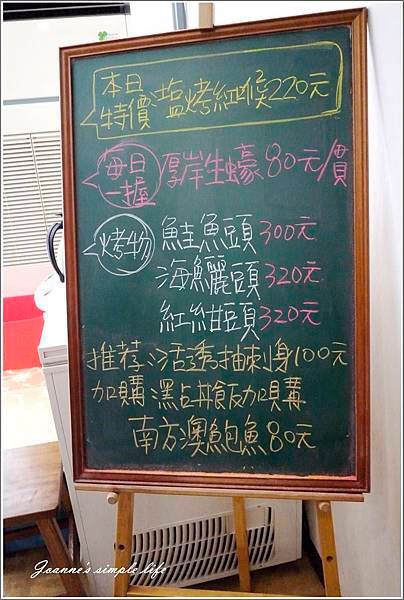 本日
特價 塩烤紅喉220元
每日
一握
厚岸生蠔80元/貫
烤物
鮭魚頭300元
海鱺頭320元
紅紺頭320元
推荐:活透抽刺身100元
加購:點丼飯加購
南方澳鮑魚80元
Joanne's simple life